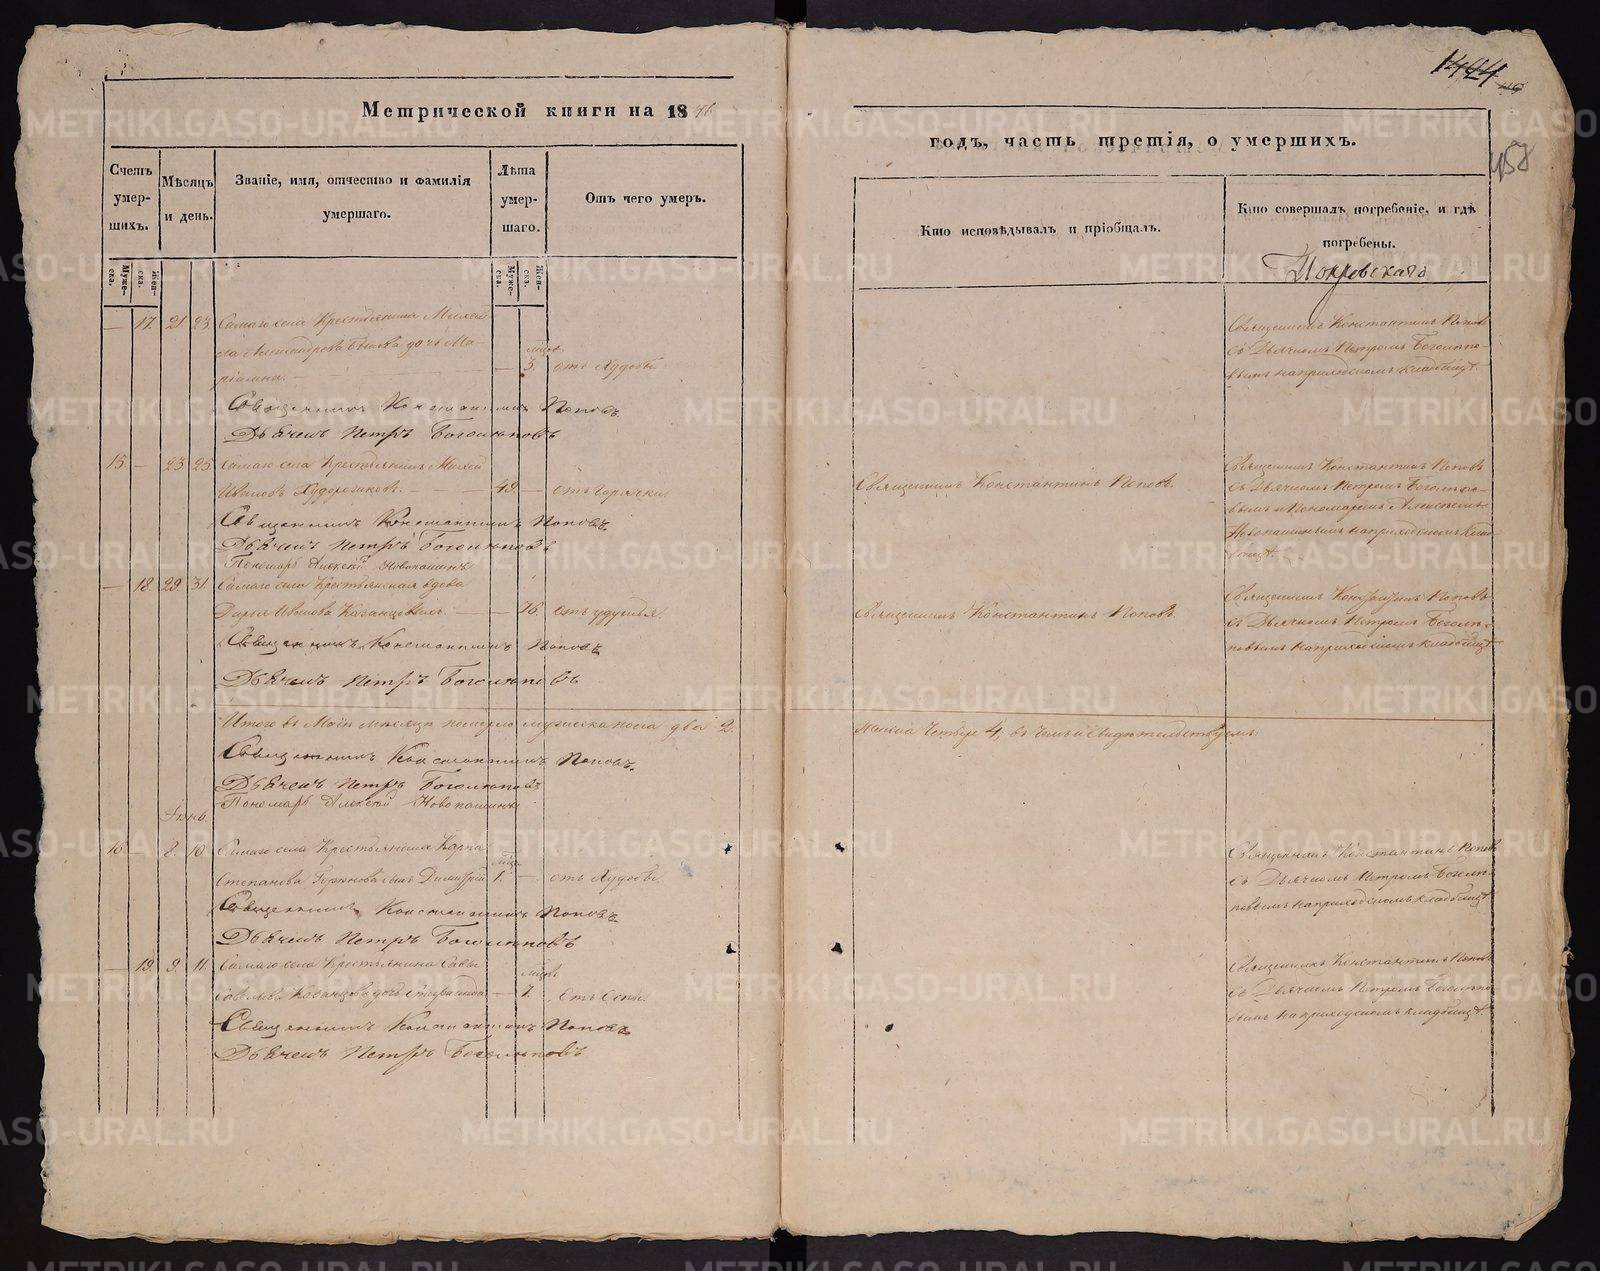 1424
458
Метрической книги на 1846
годъ, часть третія, о умершихъ.
Счетъ умер-шихъ.
Мѣсяцъ и день.
Званіе, имя, отчество и фамилія умершаго.
Лѣта умер-шаго.
Отъ чего умеръ.
Кто исповѣдывалъ и пріобщалъ.
Кто совершалъ погребеніе, и гдѣ погребены.
Муже-ска.
Жен-ска.
Муже-ска.
Жен-ска.
Покровскаго
— 17. 21. 23. Самаго села Крестьянина
Александрова дочь Ма-
ріамна. — 3. отъ худобы.
Священникъ Константинъ Поповъ
съ Дьячкомъ Петромъ Боголѣпо-
вымъ на приходскомъ кладбищѣ.
Священникъ Константинъ Поповъ.
Дьячекъ Петръ Боголѣповъ
15. — 23. 25. Самаго села Крестьянинъ
Ивановъ — 49. — отъ горячки
Священникъ Константинъ Поповъ.
Священникъ Константинъ Поповъ
съ Дьячкомъ Петромъ Боголѣпо-
вымъ и Пономаремъ Алексѣемъ
Новопашинымъ на приходскомъ клад-
бищѣ.
Священникъ Константинъ Поповъ.
Дьячекъ Петръ Боголѣповъ
Пономарь Алексѣй Новопашинъ
— 18. 29. 31. Самаго села Крестьянская вдова
Дарья Иванова — 76. отъ удушья.
Священникъ Константинъ Поповъ.
Священникъ Константинъ Поповъ
съ Дьячкомъ Петромъ Боголѣ-
повымъ на приходскомъ кладбищѣ
Священникъ Константинъ Поповъ
Дьячекъ Петръ Боголѣповъ
Итого въ Маѣ мѣсяцѣ померло мужеска пола два 2.
женска Четыре 4, въ чемъ и свидѣтельствуемъ
Священникъ Константинъ Поповъ.
Дьячекъ Петръ Боголѣповъ
Пономарь Алексѣй Новопашинъ
Іюнь.
16. — 8. 10. Самаго села Крестьянина Карпа
Степанова сынъ Димитрій 1. — отъ худобы.
Священникъ Константинъ Поповъ
съ Дьячкомъ Петромъ Боголѣ-
повымъ на приходскомъ кладбищѣ
Священникъ Константинъ Поповъ
Дьячекъ Петръ Боголѣповъ
— 19. 9. 11. Самаго села Крестьянина Савы
дочь — 7. отъ оспы.
Священникъ Константинъ Поповъ
съ Дьячкомъ Петромъ Боголѣпо-
вымъ на приходскомъ кладбищѣ.
Священникъ Константинъ Поповъ
Дьячекъ Петръ Боголѣповъ
METRIKI.GASO-URAL.RU